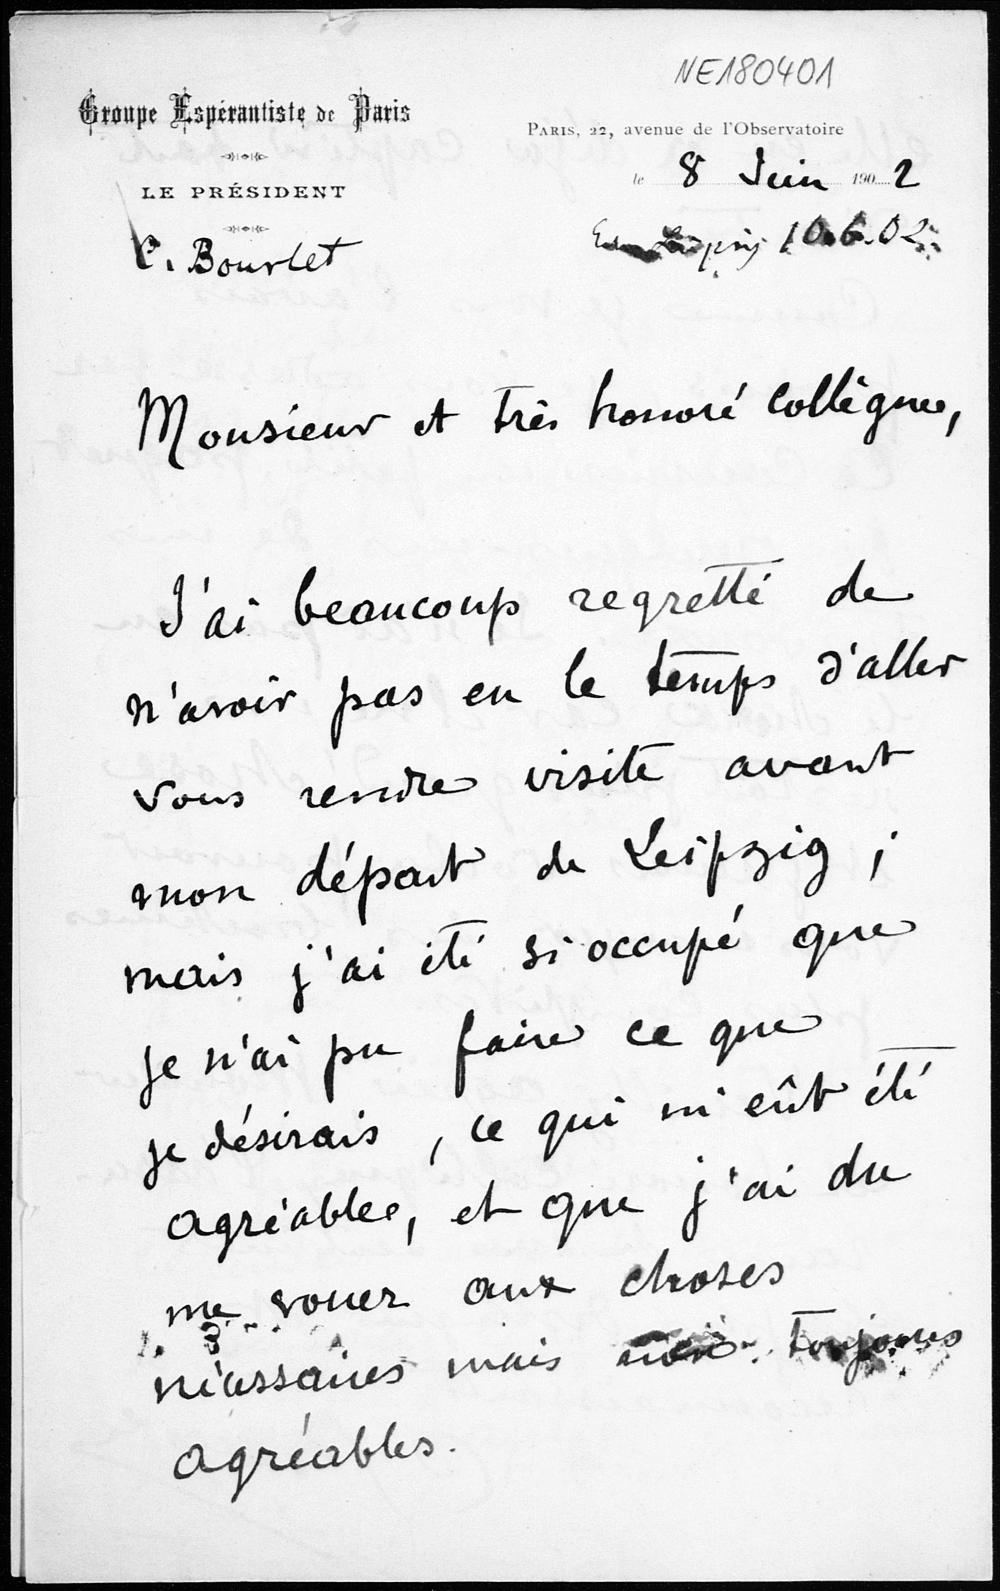 NE180401
Groupe Espérantiste de Paris
LE PRÉSIDENT
C. Bourlet
PARIS, 22, avenue de l'Observatoire
le 8 Juin 1902
10.6.02
Monsieur et très honoré Collègue,
J'ai beaucoup regretté de
n'avoir pas eu le temps d'aller
vous rendre visite avant
mon départ de Leipzig ;
mais j'ai été si occupé que
je n'ai pu faire ce que
je désirais, ce qui m'eût été
agréable, et que j'ai du
me vouer aux choses
nécessaires mais non toujours
agréables.